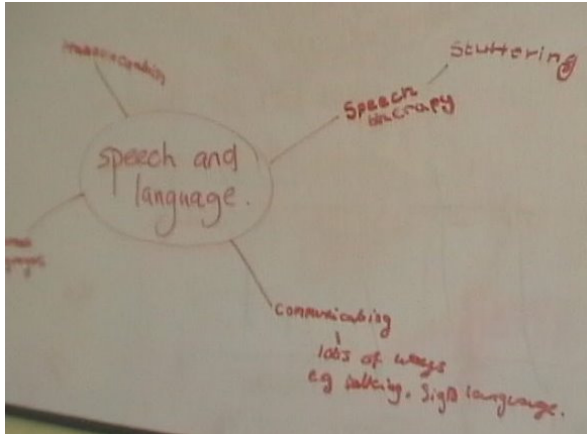 Stuttering
Speech
therapy
speech and
language.
communicating
lots of ways
eg talking, sign language.